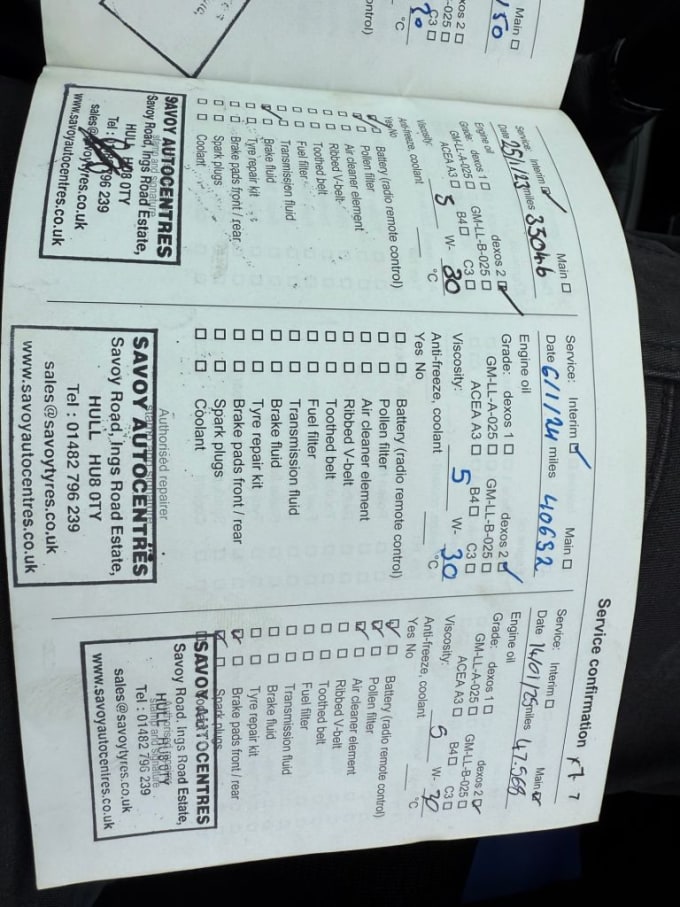 Service confirmation x7 7
Main ☐
/50
dexos 2 ☐
-025 ☐
C3 ☐
°C
ontrol)
Service: Interim ☑ Main ☐
Date 25/1/23 miles 33046
Engine oil
Grade: dexos 1 ☐ dexos 2 ☑
GM-LL-A-025 ☐ GM-LL-B-025 ☐
ACEA A3 ☐ B4 ☐ C3 ☐
Viscosity: 5 W- 30
Anti-freeze, coolant °C
Yes No
Battery (radio remote control)
Pollen filter
Air cleaner element
Ribbed V-belt
Toothed belt
Fuel filter
Transmission fluid
Brake fluid
Tyre repair kit
Brake pads front / rear
Spark plugs
Coolant
SAVOY AUTOCENTRES
stamp and signature
Savoy Road, Ings Road Estate,
HULL HU8 0TY
Tel : 796 239
sales@savoytyres.co.uk
www.savoyautocentres.co.uk
Service: Interim ☑ Main ☐
Date 6/1/24 miles 40632
Engine oil
Grade: dexos 1 ☐ dexos 2 ☑
GM-LL-A-025 ☐ GM-LL-B-025 ☐
ACEA A3 ☐ B4 ☐ C3 ☐
Viscosity: 5 W- 30
Anti-freeze, coolant °C
Yes No
☐ ☐ Battery (radio remote control)
☐ ☐ Pollen filter
☐ ☐ Air cleaner element
☐ ☐ Ribbed V-belt
☐ ☐ Toothed belt
☐ ☐ Fuel filter
☐ ☐ Transmission fluid
☐ ☐ Brake fluid
☐ ☐ Tyre repair kit
☐ ☐ Brake pads front / rear
☐ ☐ Spark plugs
☐ ☐ Coolant
Authorised repairer
SAVOY AUTOCENTRES
stamp and signature
Savoy Road, Ings Road Estate,
HULL HU8 0TY
Tel : 01482 796 239
sales@savoytyres.co.uk
www.savoyautocentres.co.uk
Service: Interim ☐ Main ☑
Date 14/01/25 miles 47,568
Engine oil
Grade: dexos 1 ☐ dexos 2 ☑
GM-LL-A-025 ☐ GM-LL-B-025 ☐
ACEA A3 ☐ B4 ☐ C3 ☐
Viscosity: 5 W- 30
Anti-freeze, coolant °C
Yes No
☑ ☐ Battery (radio remote control)
☑ ☐ Pollen filter
☑ ☐ Air cleaner element
☐ ☐ Ribbed V-belt
☐ ☐ Toothed belt
☐ ☐ Fuel filter
☐ ☐ Transmission fluid
☐ ☐ Brake fluid
☐ ☐ Tyre repair kit
☑ ☐ Brake pads front / rear
Spark plugs
SAVOY AUTOCENTRES
Savoy Road, Ings Road Estate,
Authorised repairer
HULL HU8 0TY
stamp and signature
Tel : 01482 796 239
sales@savoytyres.co.uk
www.savoyautocentres.co.uk